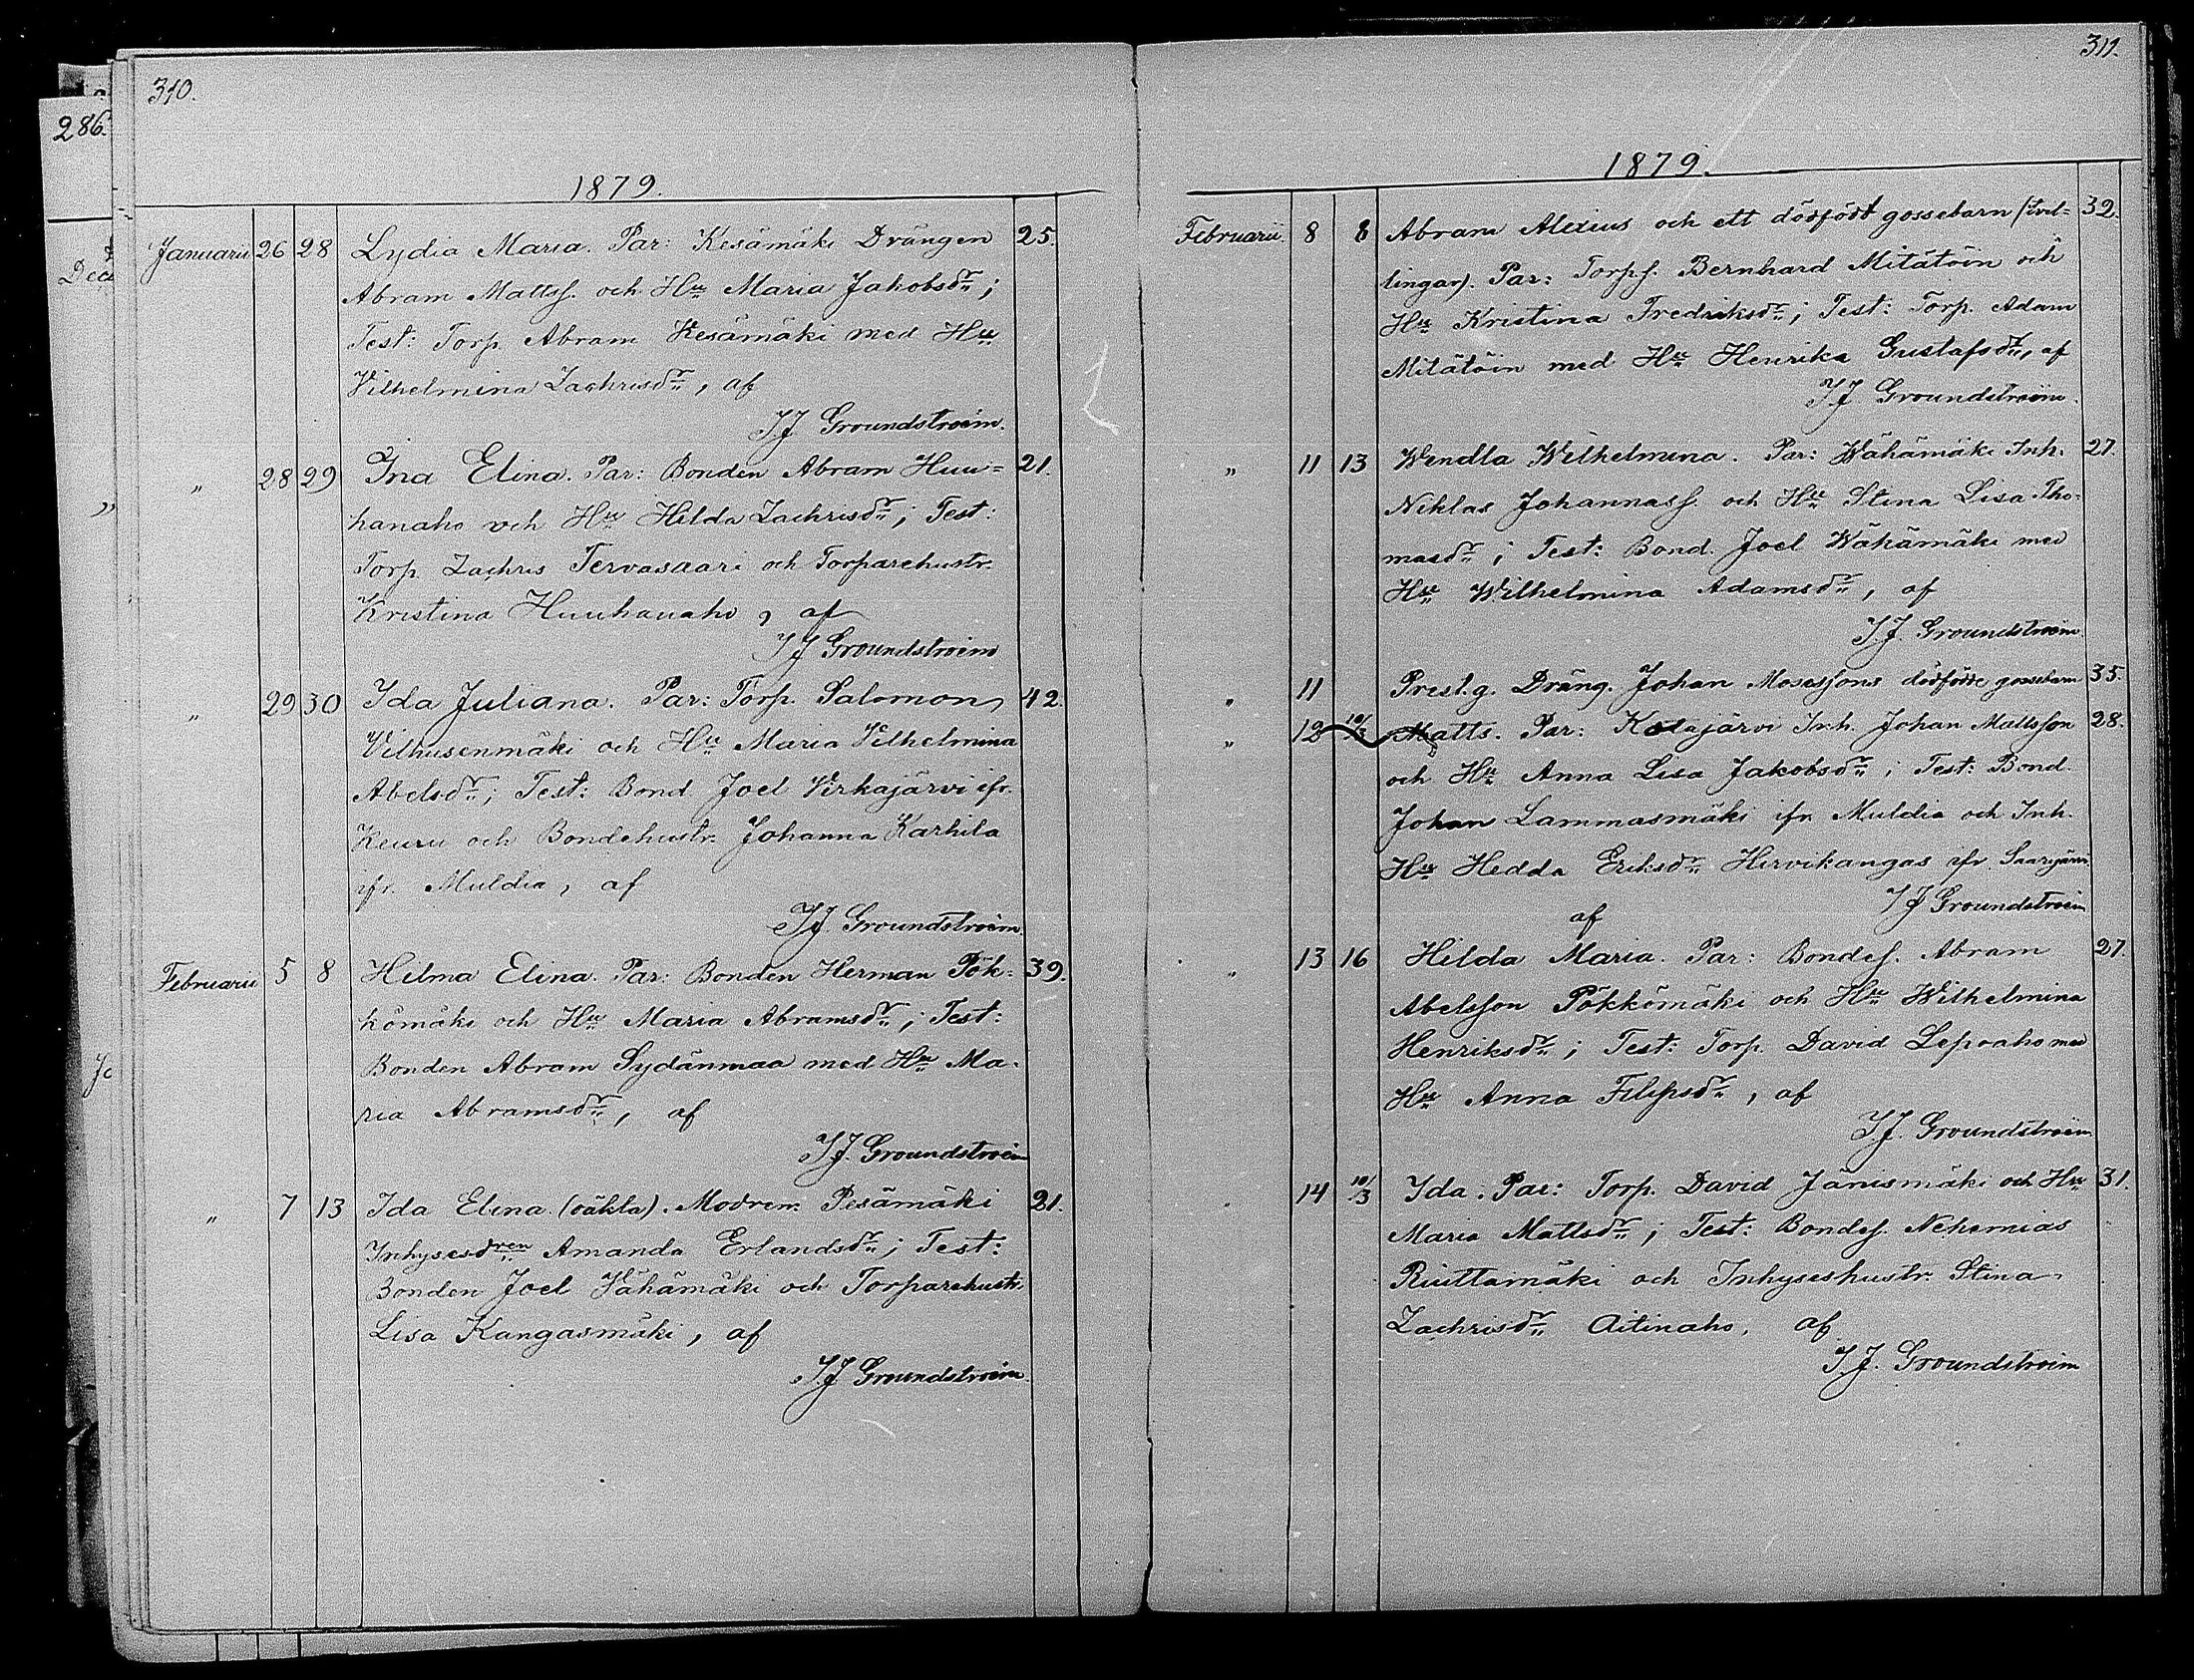 310.
286.
1879.
Januarii 26 28 Lydia Maria. Par: Kesämäki Drängen 25.
Abram Mattsf. och Hu Maria Jakobsdr;
Test: Torp. Abram Kesämäki med Hu
Vilhelmina Zachrisdr, af
I.J. Groundstroëm.
" 28 29 Ina Elina. Par: Bonden Abram Huu= 21.
hanaho och Hu Hilda Zachrisdr; Test:
Torp. Zachris Tervasaari och Torparehustr.
Kristina Huuhanaho, af
I.J. Groundstroëm
" 29 30 Ida Juliana. Par: Torp. Salomon 42.
Vilhusenmäki och Hu Maria Vilhelmina
Abelsdr; Test: Bond Joel Virkajärvi ifr.
Keuru och Bondehustr. Johanna Karhila
ifr. Muldia, af
I.J. Groundstroëm.
Februarii 5 8 Hilma Elina. Par: Bonden Herman Pök= 39.
kömäki och Hu Maria Abramsdr; Test:
Bonden Abram Sydänmaa med Hu Ma-
ria Abramsdr, af
I.J. Groundstroëm
" 7 13 Ida Elina (oäkta). Modren: Pesämäki 21.
Inhysesdren Amanda Erlandsdr; Test:
Bonden Joel Vähämäki och Torparehustr.
Lisa Kangasmäki, af
I.J. Groundstroëm.
311.
1879.
Februarii 8 8 Abram Alexius och ett dödfödt gossebarn (tvil= 32.
lingar). Par: Torpf. Bernhard Mitätöin och
Hu Kristina Fredriksdr; Test: Torp. Adam
Mitätöin med Hu Henrika Gustafsdr, af
I.J. Groundstroëm.
" 11 13 Wendla Wilhelmina. Par: Wähämäki Inh. 27.
Niklas Johannasf. och Hu Stina Lisa Tho-
masdr; Test: Bond. Joel Wähämäki med
Hu Wilhelmina Adamsdr, af
I.J. Groundstroëm.
" 11 Prest.g. Dräng. Johan Mosesfons dödfödde gossebarn 35.
" 12 10/3 Matts. Par: Kolajärvi Inh. Johan Mattsson 28.
och Hu Anna Lisa Jakobsdr; Test: Bond.
Johan Lammasmäki ifr. Muldia och Inh.
Hu Hedda Eriksdr Hirvikangas ifr Saarijärvi
af I.J. Groundstroëm
" 13 16 Hilda Maria. Par: Bondef. Abram 27.
Abelsson Pökkömäki och Hu Wilhelmina
Henriksdr; Test: Torp. David Lepoaho med
Hu Anna Filipsdr, af
I.J. Groundstroëm
" 14 10/3 Ida. Par: Torp. David Jänismäki och Hu 31.
Maria Mattsdr; Test: Bondef. Nehemias
Riuttamäki och Inhyseshustr. Stina
Zachrisdr Aitinaho, af
I.J. Groundstroëm